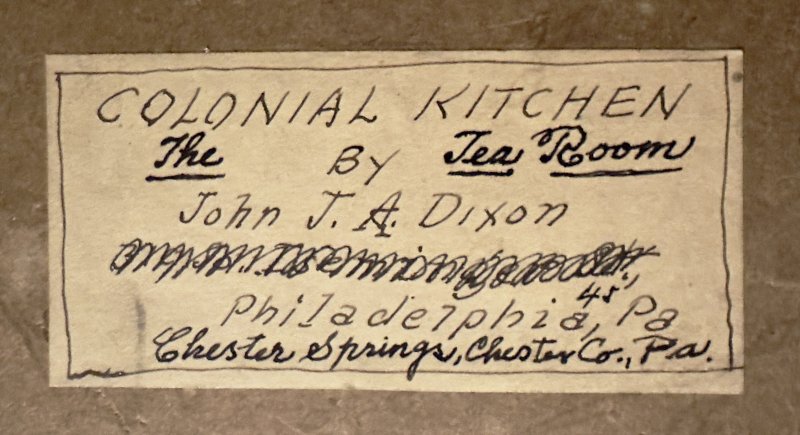 COLONIAL KITCHEN
The By Tea Room
John J. A. Dixon
45
Philadelphia, Pa
Chester Springs, Chester Co., Pa.